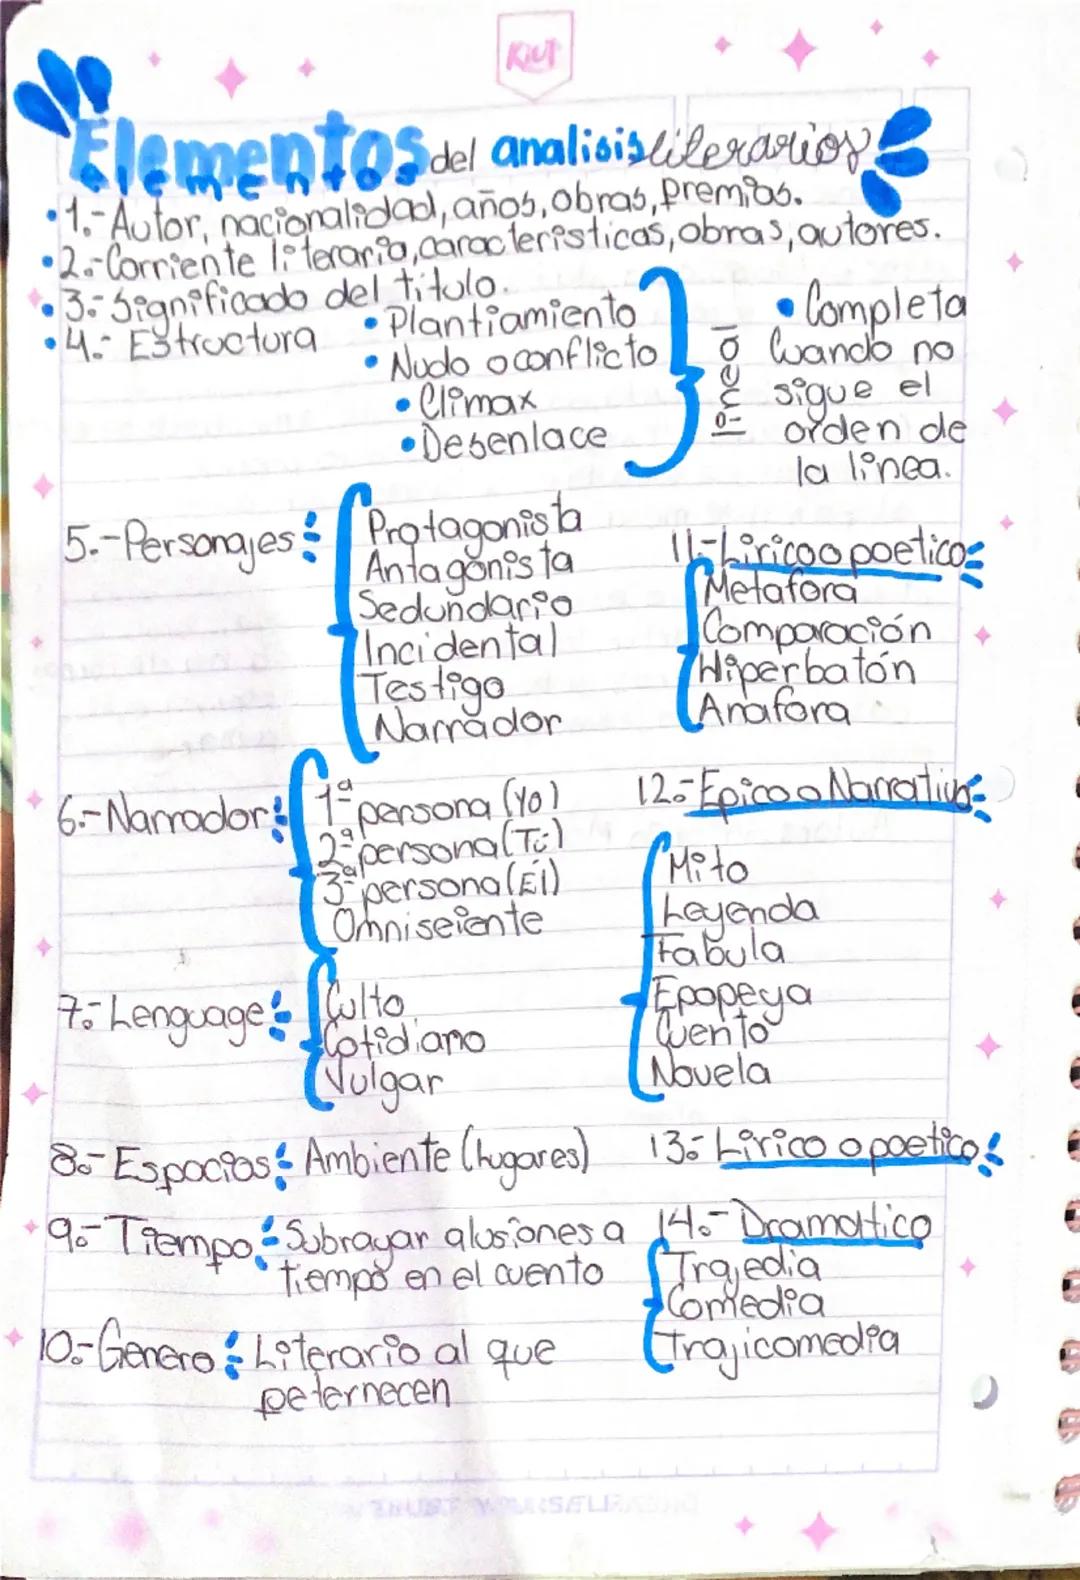 KIUT
Elementos del analisis literarios
• 1.- Autor, nacionalidad, años, obras, premios.
• 2.- Corriente literaria, caracteristicas, obras, autores.
• 3.- Significado del titulo.
• 4.- Estructura
• Plantiamiento
• Nudo o conflicto
• Climax
• Desenlace
lineal
• Completa
Cuando no
sigue el
orden de
la linea.
5.- Personajes:
Protagonista
Antagonista
Sedundario
Incidental
Testigo
Narrador
6.- Narrador:
1ª persona (Yo)
2ª persona (Tú)
3ª persona (Él)
Omniseiente
7.- Lenguage:
Culto
Cotidiano
Vulgar
8.- Espacios: Ambiente (lugares)
9.- Tiempo: Subrayar alusiones a
tiempo en el cuento
10.- Genero: Literario al que
peternecen
11.- Lirico o poetico:
Metafora
Comparación
Hiperbatón
Anafora
12.- Epico o Narrativo:
Mito
Leyenda
Fabula
Epopeya
Cuento
Novela
13.- Lirico o poetico:
14.- Dramattico
Trajedia
Comedia
Trajicomedia